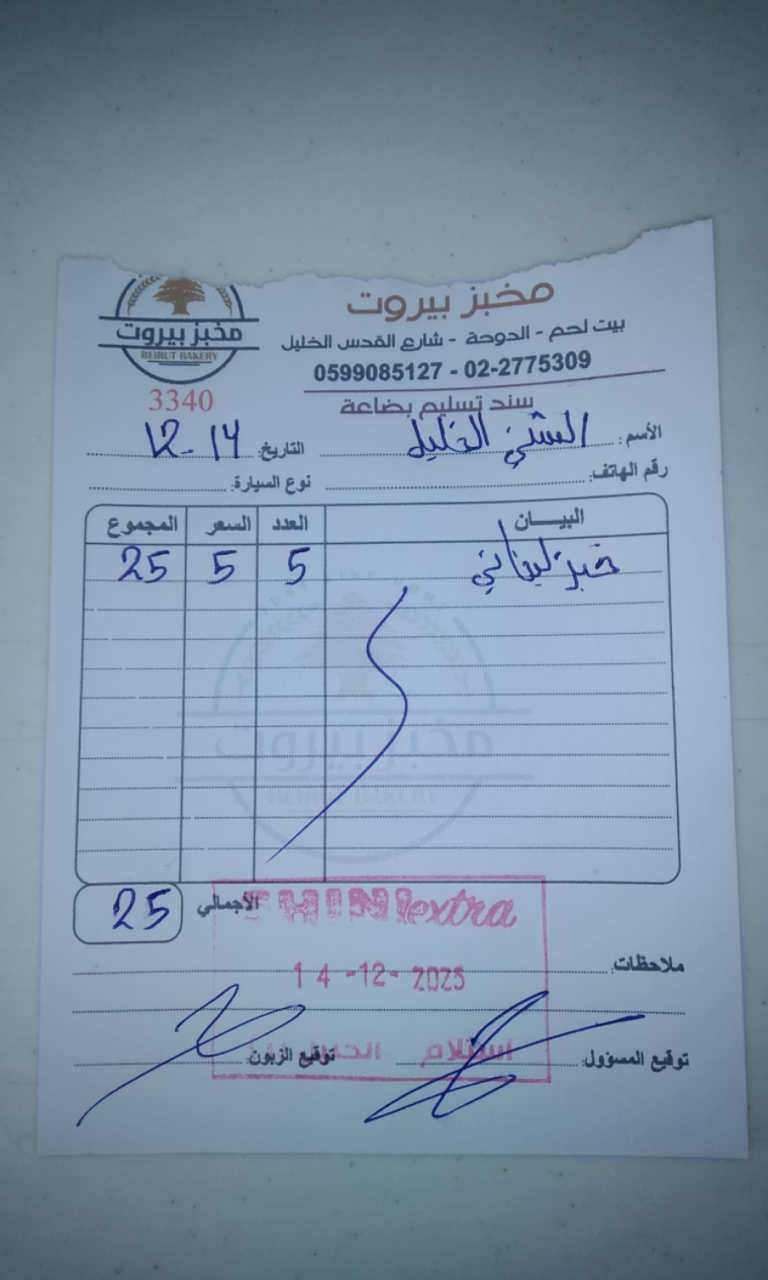 مخبز بيروت
BEIRUT BAKERY
3340
مخبز بيروت
بيت لحم - الدوحة - شارع القدس الخليل
0599085127 - 02-2775309
سند تسليم بضاعة
الأسم: الشني الخليل
التاريخ: 14-12
رقم الهاتف:
نوع السيارة:
البيــــان العدد السعر المجموع
خبز لبناني 5 5 25
مخبز بيروت
BEIRUT BAKERY
الأجمالي 25
SHINI extra
ملاحظات:
14-12-2025
استلام
توقيع المسؤول: توقيع الزبون: